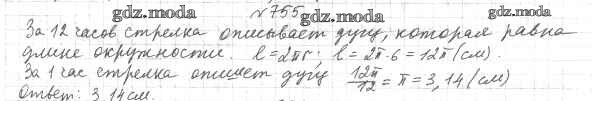 gdz.moda №755 gdz.moda gdz.moda
За 12 часов стрелка описывает дугу, которая равна
длине окружности. l=2πr; l=2π·6=12π(см).
За 1 час стрелка опишет дугу 12π/12=π=3,14(см)
Ответ: 3,14см.